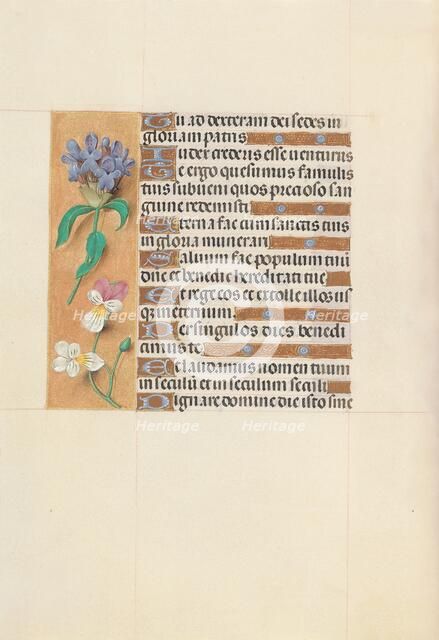 Tu ad dexteram dei sedes in
gloria patris
Iudex crederis esse uenturus
Te ergo quesumus famulis
tuis subueni quos precioso san
guine redemisti
Eterna fac cum sanctis tuis
in gloria munerari
Saluum fac populum tuū
dñe et benedic hereditati tue
Et rege eos et extolle illos us
q; in eternum
Per singulos dies benedi
cimus te
Et laudamus nomen tuum
in seculū et in seculum seculi
Dignare domine die isto sine
Heritage
Heritage
Heritage
Heritage
Heritage
Heritage